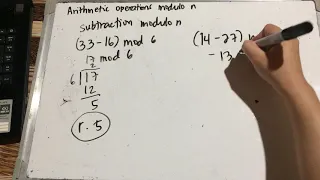 Arithmetic operations modulo n
subtraction modulo n
(33-16) mod 6
17 mod 6
2
6 17
12
5
r. 5
(14-27)
-13